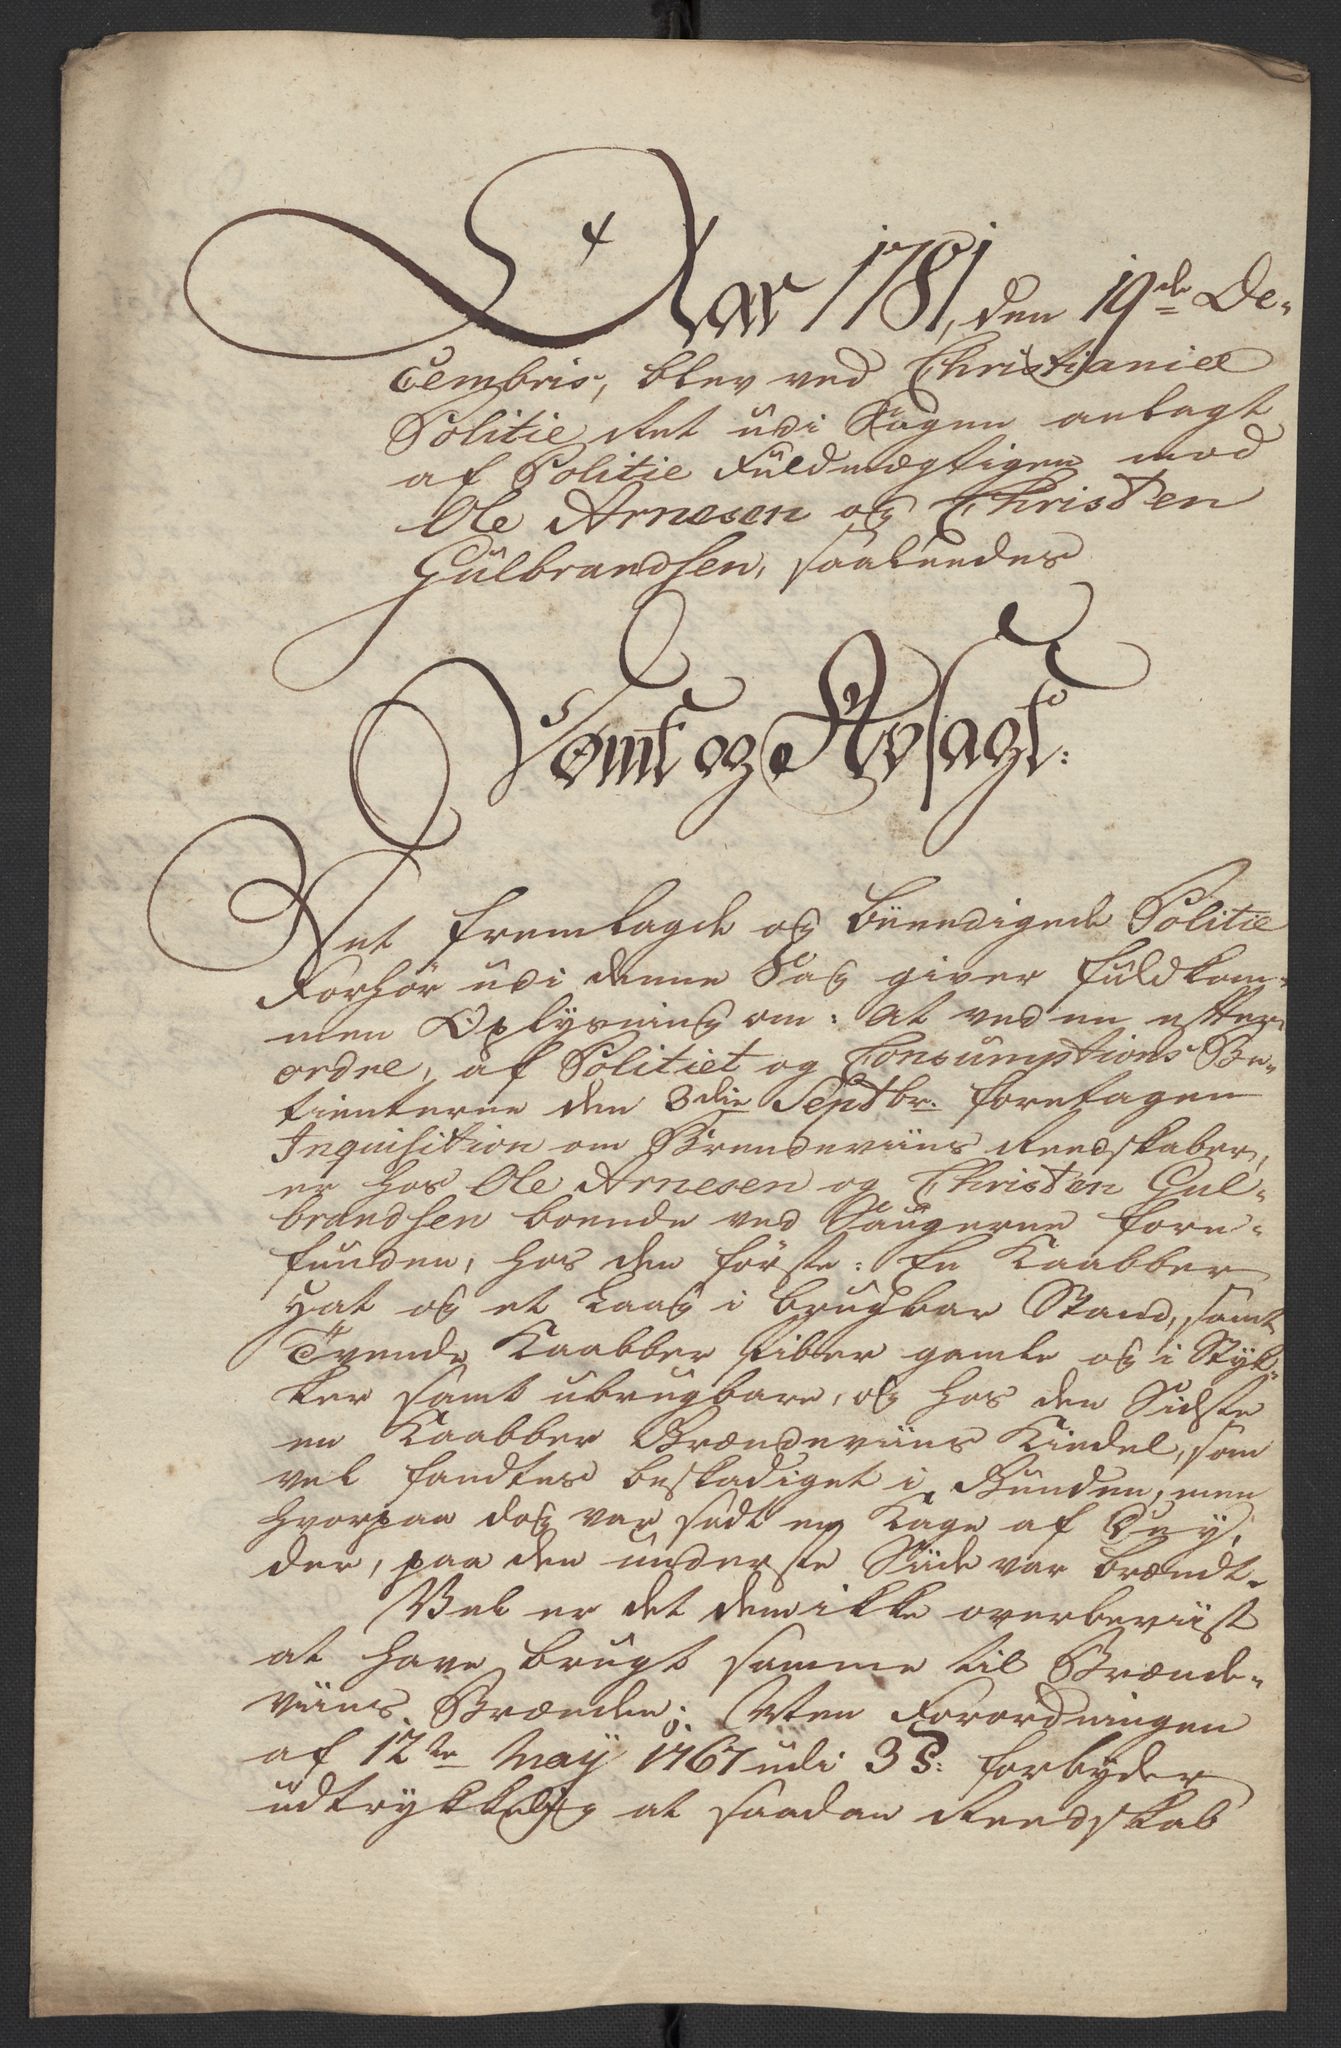 Aar 1781, den 19de De-
cembris, blev ved Christianiæ
Politie Ret udi Sagen anlagt
af Politie Fuldmægtigen mod
Ole Arnesen og Christen
Gulbrandsen, saaledes
Dømt og Avsagt:
Det fremlagde og beeedigede Politie
Forhør udi denne Sag giver fuldkom-
men Oplysning om: at ved en efter
ordre, af Politiet og Consumptions Be-
tienterne den 3die Septbr. foretagen
Inquisition om Brendeviins Reedskaber,
er hos Ole Arnesen og Christen Gul-
brandsen boende ved Saugerne fore-
funden, hos den første: En Kaabber
Hat og et Laag i brugbar Stand, samt
Tvende Kaabber Piber gamle og i Styk-
ker samt ubrugbare, og hos den Sidste
en Kaabber Brændeviins Kiedel, som
vel fandtes beskadiget i Bunden, men
hvorpaa dog var sadt en Kage af Dey,
der, paa den underste Side var brændt.
Vel er det dem ikke overbeviist
at have brugt samme til Brænde-
viins Brænden; Men Forordningen
af 12te May 1767 udi 3 §: forbyder
udtrykkelig at saadan Reedskab